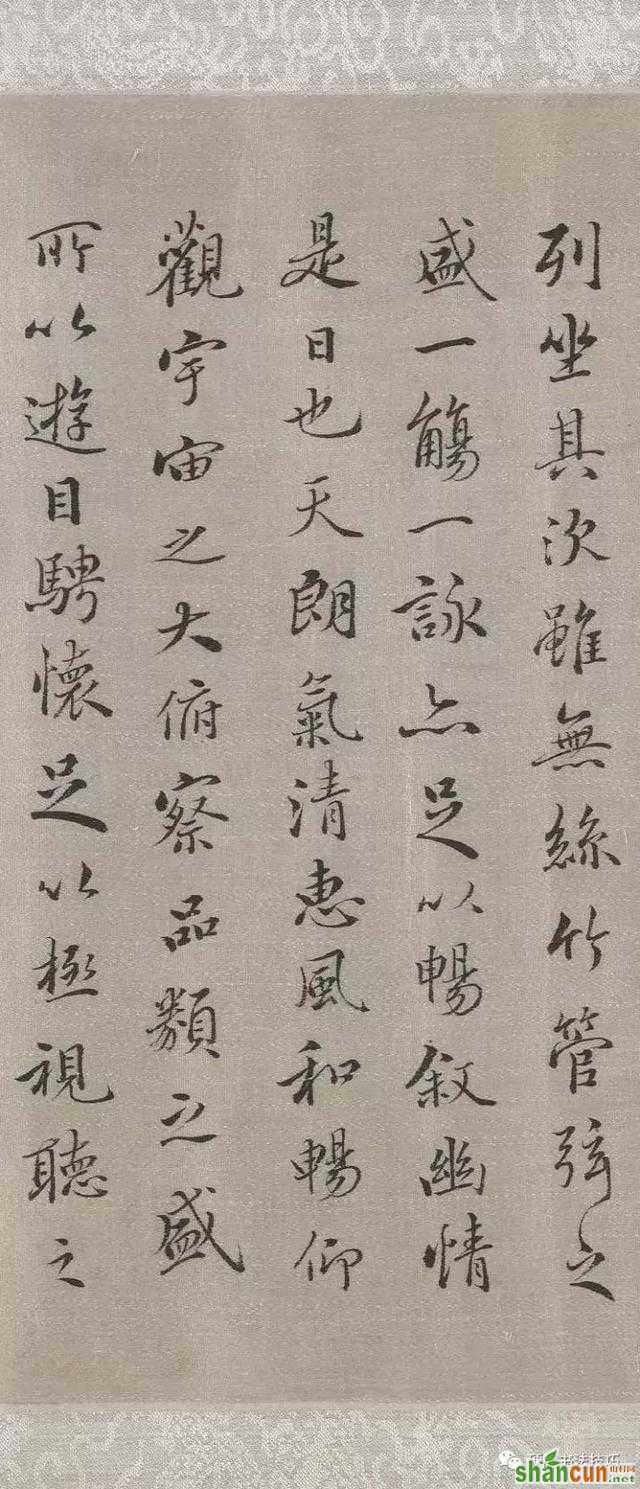 列坐其次雖無絲竹管弦之
盛一觴一詠亦足以暢叙幽情
是日也天朗氣清惠風和暢仰
觀宇宙之大俯察品類之盛
所以遊目騁懷足以極視聽之
书法技巧
shancun
.net